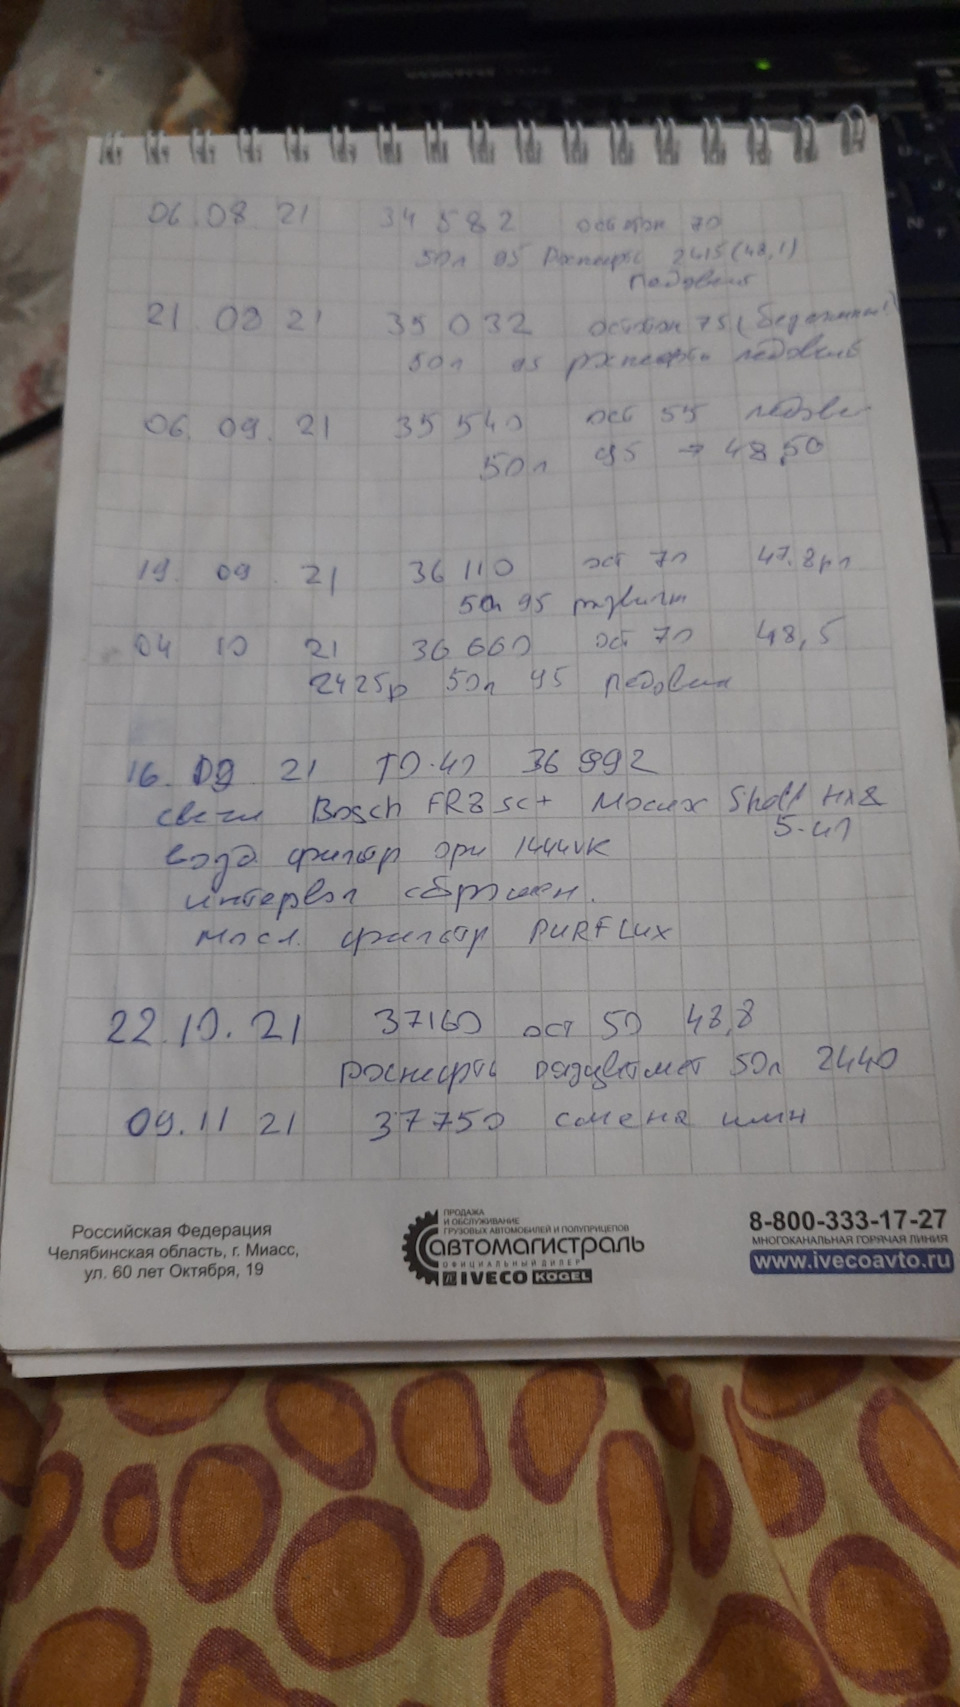 06.08.21 34 582 остаток 70
50л 95 Роснефть 2415 (48,1)
21.08 21 35 032 остаток 75
50л 95 роснефть
06.09.21 35 540 ост 55
50л 95 → 48,50
19.09.21 36 110 ост 70 47.8 рл
50л 95
04 10 21 36 660 ост 70 48,5
2425р 50л 95
16. 21 ТО-40 36 992
свечи Bosch FR8 sc+ Масло Shell HX8
5-40
возд фильтр ори 1444VK
интервал сброшен.
масл. фильтр PURFLUX
22.10.21 37160 ост 50 48,8
роснефть 50л 2440
09.11 21 37750 смена шин
Российская Федерация
Челябинская область, г. Миасс,
ул. 60 лет Октября, 19
ПРОДАЖА
И ОБСЛУЖИВАНИЕ
ГРУЗОВЫХ АВТОМОБИЛЕЙ И ПОЛУПРИЦЕПОВ
автомагистраль
ОФИЦИАЛЬНЫЙ ДИЛЕР
IVECO KOGEL
8-800-333-17-27
МНОГОКАНАЛЬНАЯ ГОРЯЧАЯ ЛИНИЯ
www.ivecoavto.ru